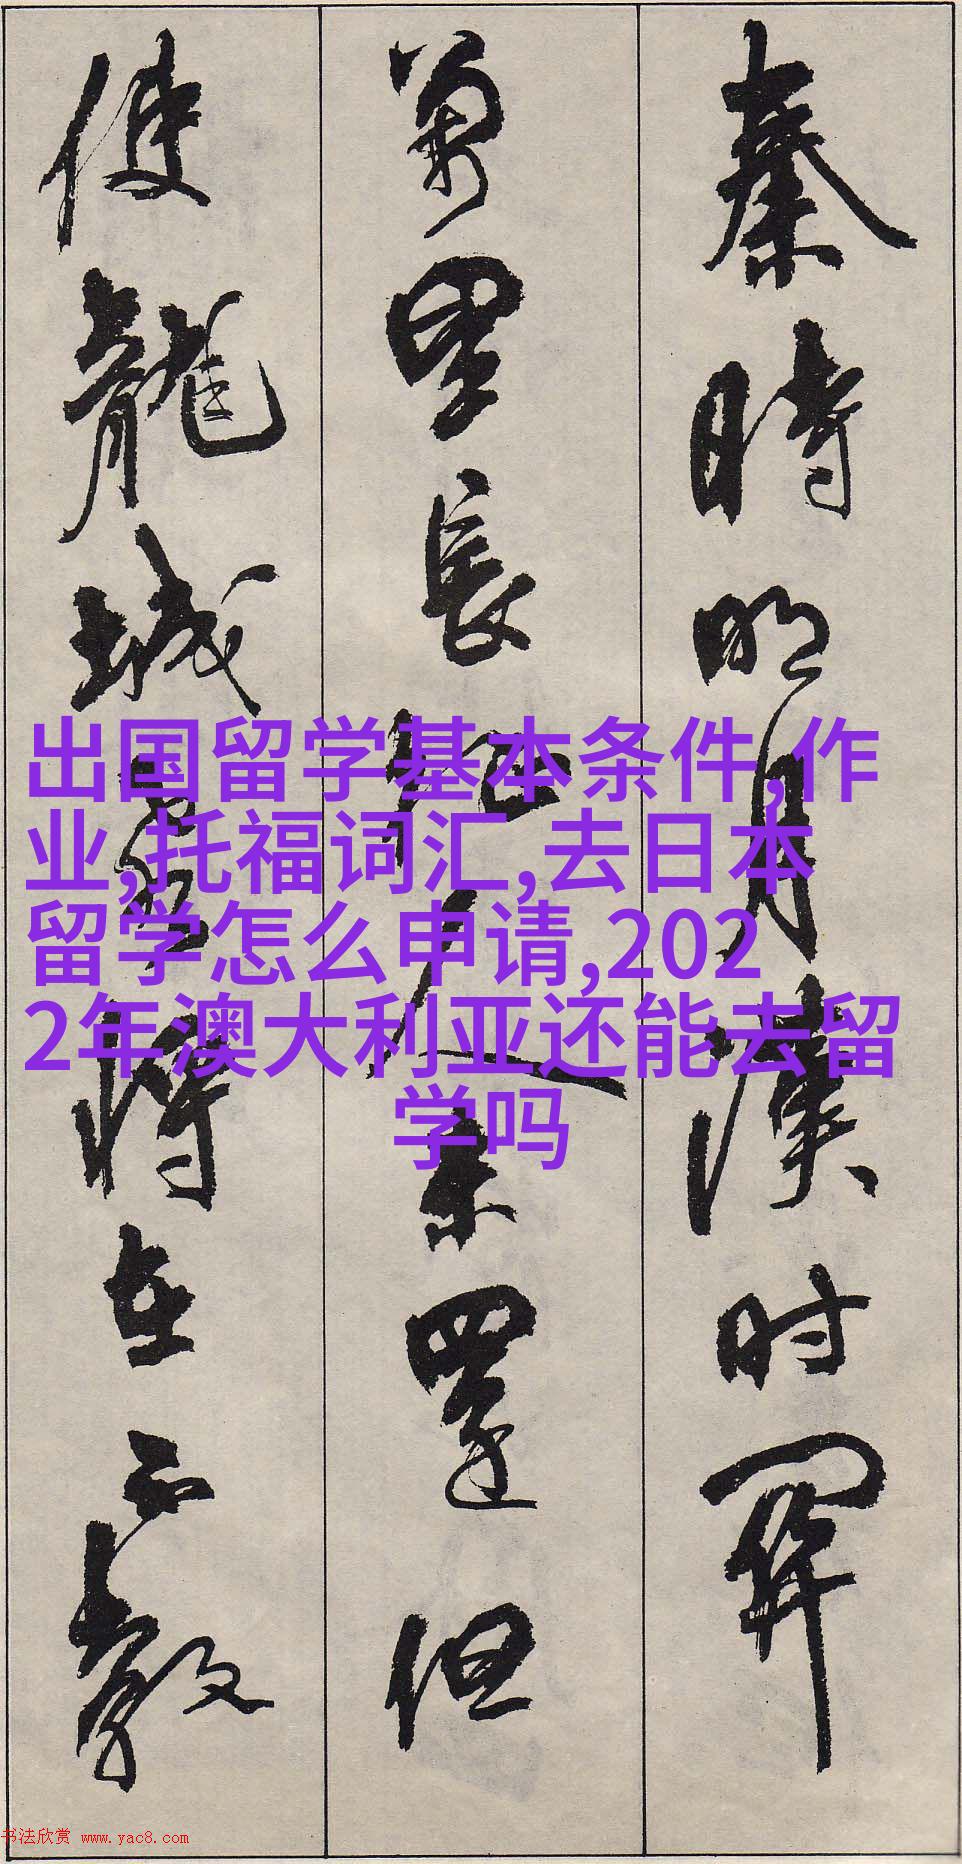 秦時明月漢时關
萬里長征人未還但
使龍城飛將在不教
出国留学基本条件,作
业,托福词汇,去日本
留学怎么申请,202
2年澳大利亚还能去留
学吗
书法欣赏 www.yac8.com